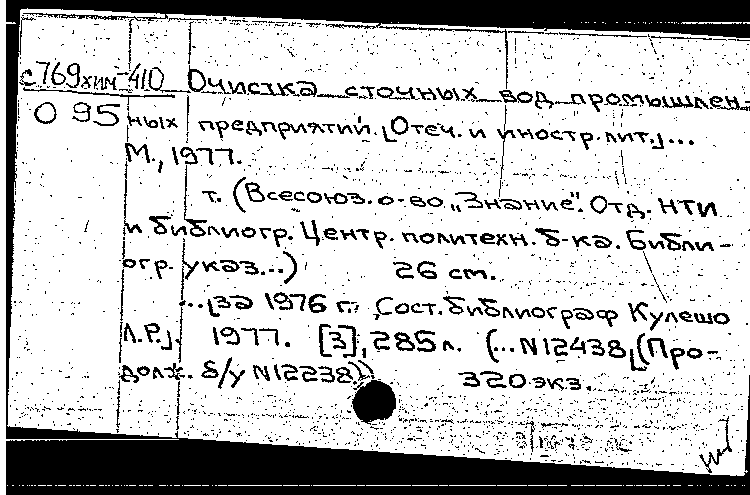 с769хим-410 Очистка сточных вод промышлен-
О 95 ных предприятий. [Отеч. и иностр. лит.] ...
М., 1977.
т. (Всесоюз. о-во „Знание". Отд. НТИ
и библиогр. Центр. политехн. б-ка. Библи-
огр. указ...) 26 см.
...[за 1976 г.: Сост. библиограф Кулешо
Л.Р.]. 1977. [3], 285 л. (...N12438[(Про-
долж. б/у N12238)) 320 экз.